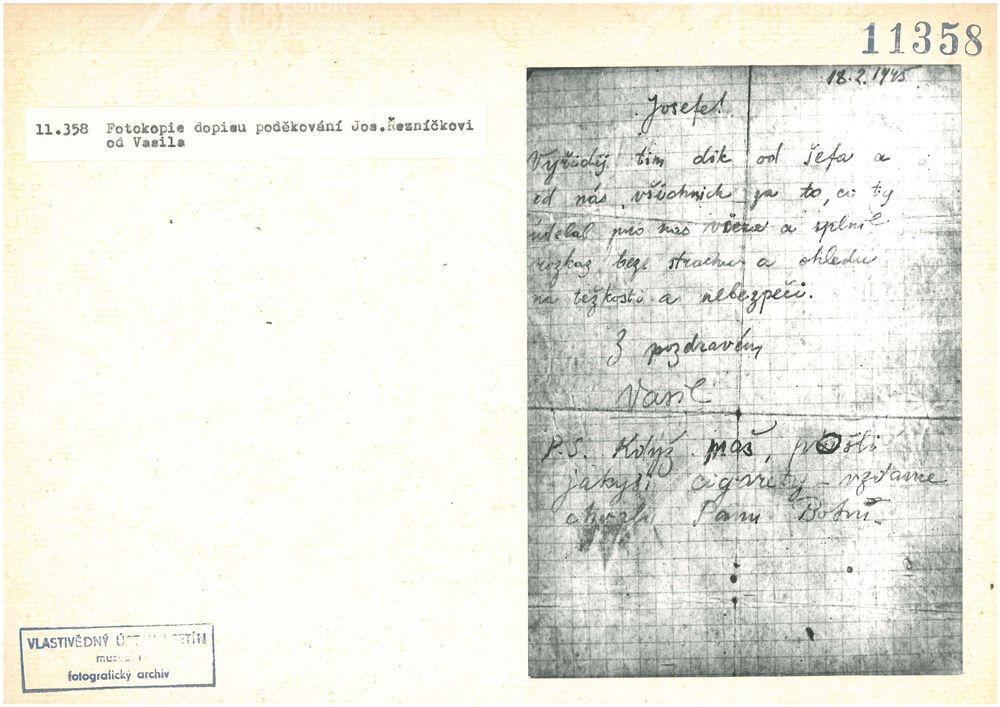 REGIONU
11358
11.358 Fotokopie dopisu poděkování Jos.Řezníčkovi
od Vasila
18.2.1945
Josefe!
Vyřiďuj tim dik od šefa a
od nás všichnich za to, co ty
udělal pro nas včera a splnil
rozkaz beze strachu a ohledu
na težkosti a nebezpeči.
Z pozdravém,
Vasil
P.S. Když maš, pošli
jakysi cigarety - vzdame
chvalu Panu Bohu.
VLASTIVĚDNÝ ÚSTAV VSETÍN
fotografický archiv